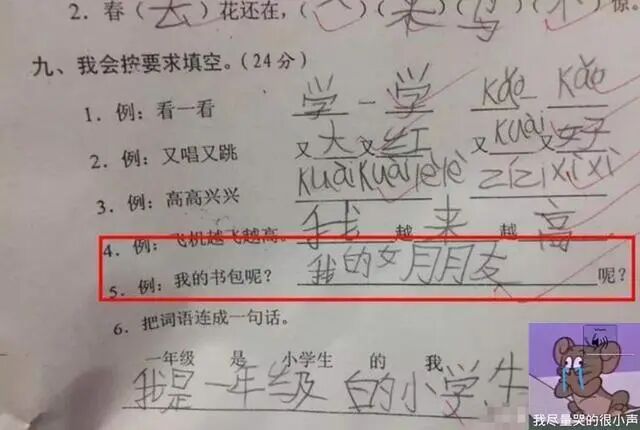 2. 春（去）花还在，（ ）（来）（鸟）（不）惊。
九、我会按要求填空。(24分)
1. 例：看一看 学一学 kǎo-kǎo
2. 例：又唱又跳 又大又红 又kuài又好
3. 例：高高兴兴 kuàikuàilèlè zízixìxì
4. 例：飞机越飞越高。 我越来越高
5. 例：我的书包呢？ 我的女朋友呢？
6. 把词语连成一句话。
一年级 是 小学生 的 我
我是一年级的小学生
我尽量哭的很小声